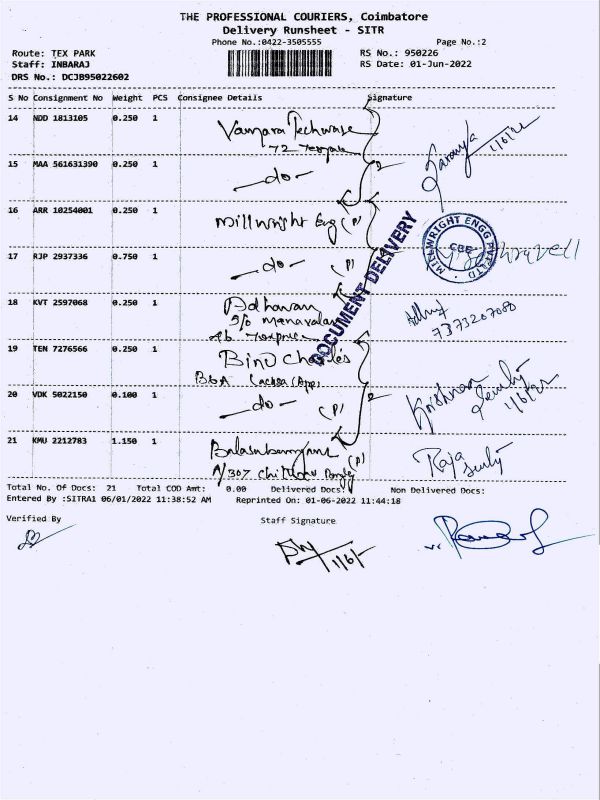 THE PROFESSIONAL COURIERS, Coimbatore
Delivery Runsheet - SITR
Phone No.:0422-3505555 Page No.:2
Route: TEX PARK RS No.: 950226
Staff: INBARAJ RS Date: 01-Jun-2022
DRS No.: DCJB95022602
S No Consignment No Weight PCS Consignee Details Signature
14 NDD 1813105 0.250 1
72
15 MAA 561631390 0.250 1 -do-
16 ARR 10254001 0.250 1 Millwright Eng (P)
MILLWRIGHT ENGG PVT LTD
CBE
17 RJP 2937336 0.750 1 -do- (P)
DOCUMENT DELIVERY
18 KVT 2597068 0.250 1
S/o Manavalan
7373207080
19 TEN 7276566 0.250 1 Binu Charles
B6A
20 VDK 5022150 0.100 1 -do- (P)
Krishnan
1/6/22
21 KMU 2212783 1.150 1 (P)
A/307
Raja
Total No. Of Docs: 21 Total COD Amt: 0.00 Delivered Docs: Non Delivered Docs:
Entered By :SITRA1 06/01/2022 11:38:52 AM Reprinted On: 01-06-2022 11:44:18
Verified By Staff Signature
1/6/-